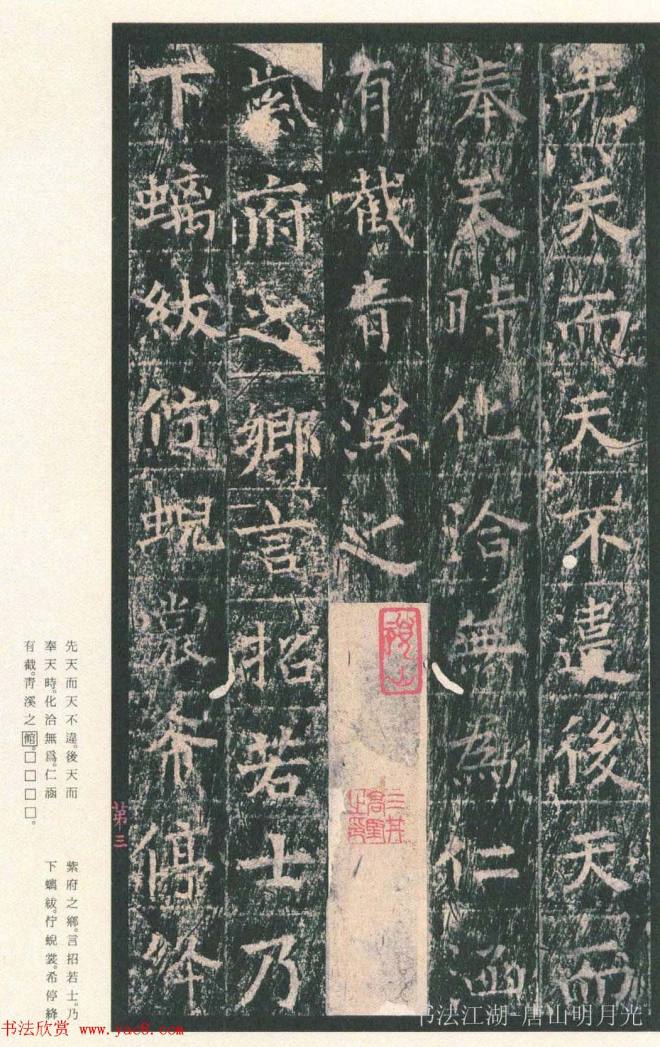 先天而天不違後天而
奉天時化洽無為仁涵
有截青溪之
紫府之鄉言招若士乃
下螭紱佇蜺裳希停絳
第三
先天而天不違。後天而
奉天時。化洽無爲。仁涵
有截。青溪之館。□□□□。
紫府之鄉。言招若士。乃
下螭紱。佇蜺裳。希停絳
书法欣赏 www.yac8.com
书法江湖-唐山明月光